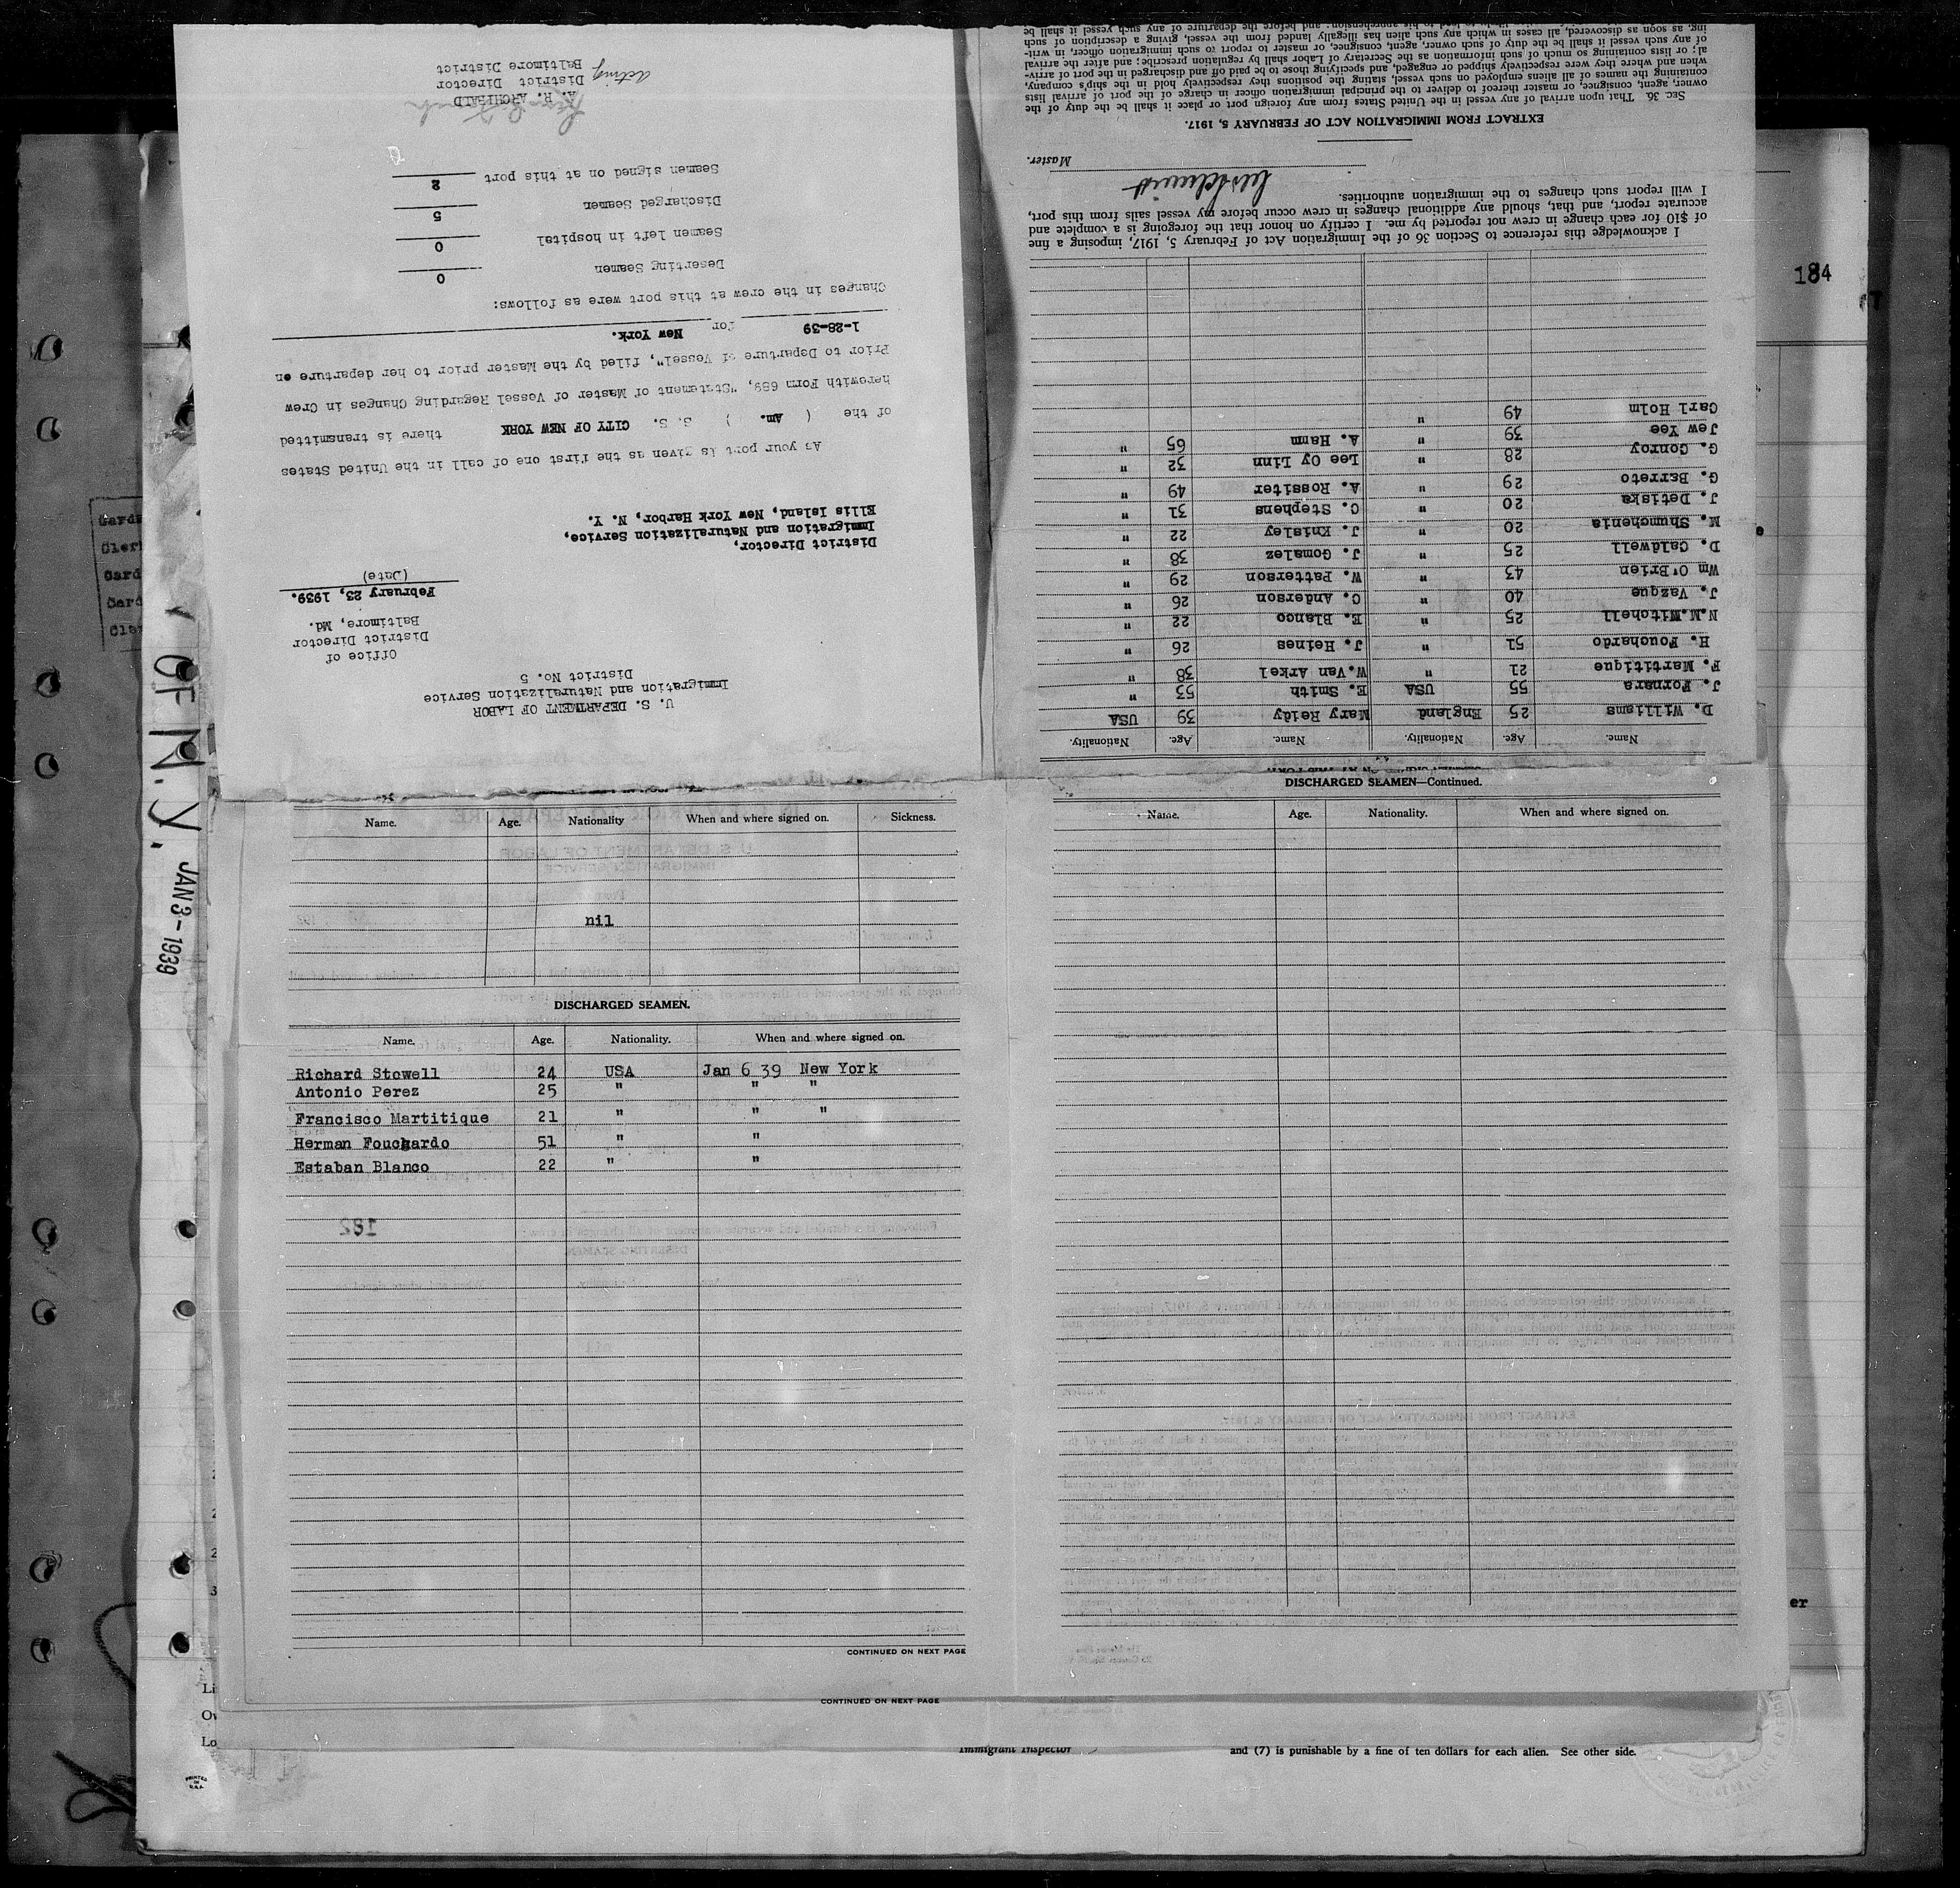 U. S. DEPARTMENT OF LABOR
Immigration and Naturalization Service
District No. 5
Office of
District Director
Baltimore, Md.
February 23, 1939.
(Date)
District Director,
Immigration and Naturalization Service,
Ellis Island, New York Harbor, N. Y.
As your port is given as the first one of call in the United States
of the ( Am. ) S. S. CITY OF NEW YORK there is transmitted
herewith Form 689, "Statement of Master of Vessel Regarding Changes in Crew
Prior to Departure of Vessel", filed by the Master prior to her departure on
1-28-39 for New York.
Changes in the crew at this port were as follows:
Deserting Seamen 0
Seamen left in hospital 0
Discharged Seamen 5
Seamen signed on at this port 2
A. R. ARCHIBALD
District Director
Acting
Baltimore District
Name. Age. Nationality. Name. Age. Nationality.
D. Williams 25 England Mary Reidy 39 USA
J. Fornara 55 USA E. Smith 53 "
F. Martitique 21 " W. Van Arkel 38 "
H. Fouchardo 51 " J. Heines 26 "
N.M.Mitchell 25 E. Blanco 22 "
J. Vazque 40 C. Anderson 26 "
Wm O'Brien 43 W. Patterson 29 "
D. Caldwell 25 " J. Gomalez 38 "
M. Shumchenia 20 " J. Knisley 22 "
J. Detiska 20 " C. Stephens 31 "
G. Barreto 29 " A. Rossiter 49 "
G. Conroy 28 " Lee Oy Linn 32 "
Jew Yee 39 " A. Hamm 65 "
Carl Holm 49 "
I acknowledge this reference to Section 36 of the Immigration Act of February 5, 1917, imposing a fine
of $10 for each change in crew not reported by me. I certify on honor that the foregoing is a complete and
accurate report, and that, should any additional changes in crew occur before my vessel sails from this port,
I will report such changes to the immigration authorities.
Master.
EXTRACT FROM IMMIGRATION ACT OF FEBRUARY 5, 1917.
SEC. 36. That upon arrival of any vessel in the United States from any foreign port or place it shall be the duty of the
owner, agent, consignee, or master thereof to deliver to the principal immigration officer in charge of the port of arrival lists
containing the names of all aliens employed on such vessel, stating the positions they respectively hold in the ship's company,
when and where they were respectively shipped or engaged, and specifying those to be paid off and discharged in the port of arriv-
al; or lists containing so much of such information as the Secretary of Labor shall by regulation prescribe; and after the arrival
of any such vessel it shall be the duty of such owner, agent, consignee, or master to report to such immigration officer, in writ-
ing, as soon as discovered, all cases in which any such alien has illegally landed from the vessel, giving a description of such
184
OF N.Y.
JAN 3-1939
Name. Age. Nationality When and where signed on. Sickness.
nil
DISCHARGED SEAMEN.
Name. Age. Nationality. When and where signed on.
Richard Stowell 24 USA Jan 6 39 New York
Antonio Perez 25 " " "
Francisco Martitique 21 " " "
Herman Fouchardo 51 " "
Estaban Blanco 22 " "
182
CONTINUED ON NEXT PAGE
CONTINUED ON NEXT PAGE
DISCHARGED SEAMEN—Continued.
Name. Age. Nationality. When and where signed on.
er
Immigrant Inspector
and (7) is punishable by a fine of ten dollars for each alien. See other side.
PRINTED
IN
U.S.A.